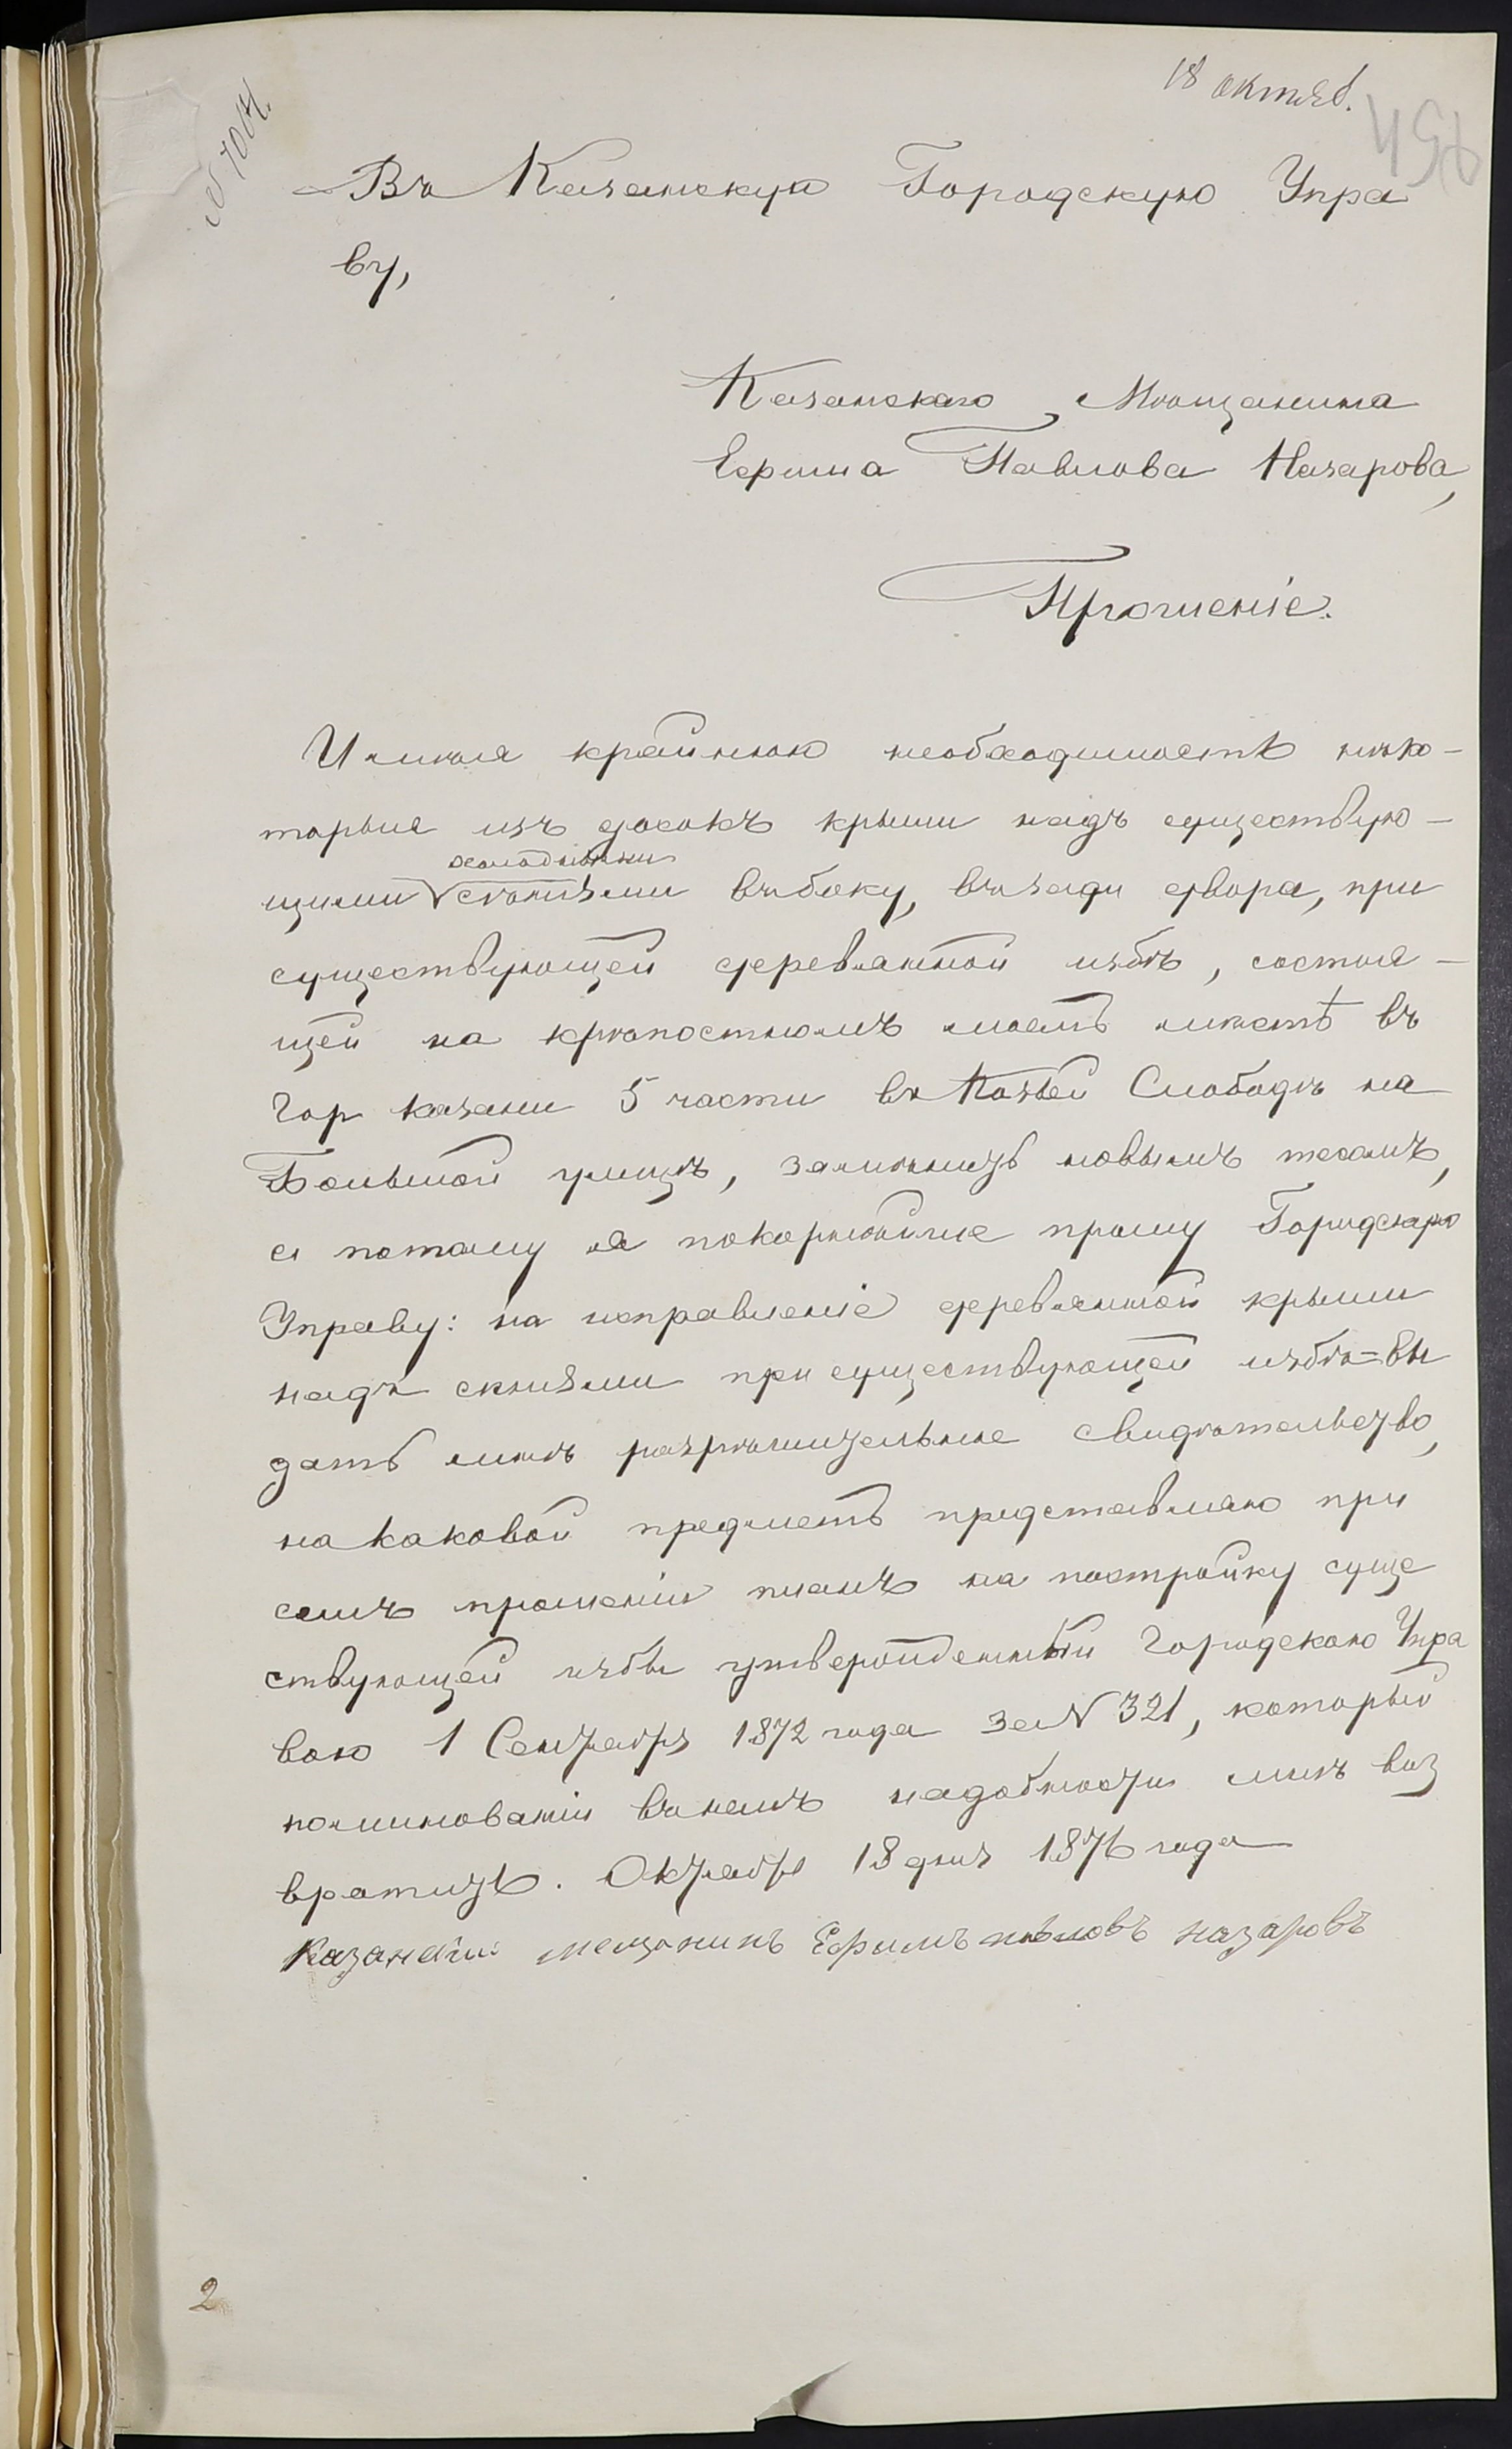 18 октяб.
456
№ 7064.
Въ Казанскую Городскую Упра
ву,
Казанскаго Мѣщанина
Ефима Павлова Назарова,
Прошеніе.
Имѣя крайнюю необходимость нѣко-
торыя изъ досокъ крыши надъ существую-
холодными
щими сѣнями въ боку, въ зади двора, при
существующей деревянной избѣ, состоя-
щей на крѣпостномъ моемъ мѣстѣ въ
Гор Казани 5 части въ Козьей Слободѣ на
Большой улицѣ, замѣнить новымъ тесомъ,
а потому я покорнѣйше прошу Городскую
Управу: на исправленіе деревянной крыши
надъ сѣнями при существующей избѣ=вы
дать мнѣ разрѣшительное свидѣтельство,
на каковой предметъ представляю при
семъ прошеніи планъ на постройку суще
ствующей избы утвержденный Городскою Упра
вою 1 Сентября 1872 года за № 321, который
по минованіи въ немъ надобности мнѣ воз
вратить. Октября 18 дня 1876 года
Казанскій мещанинъ Ефимъ павловъ назаровъ
2